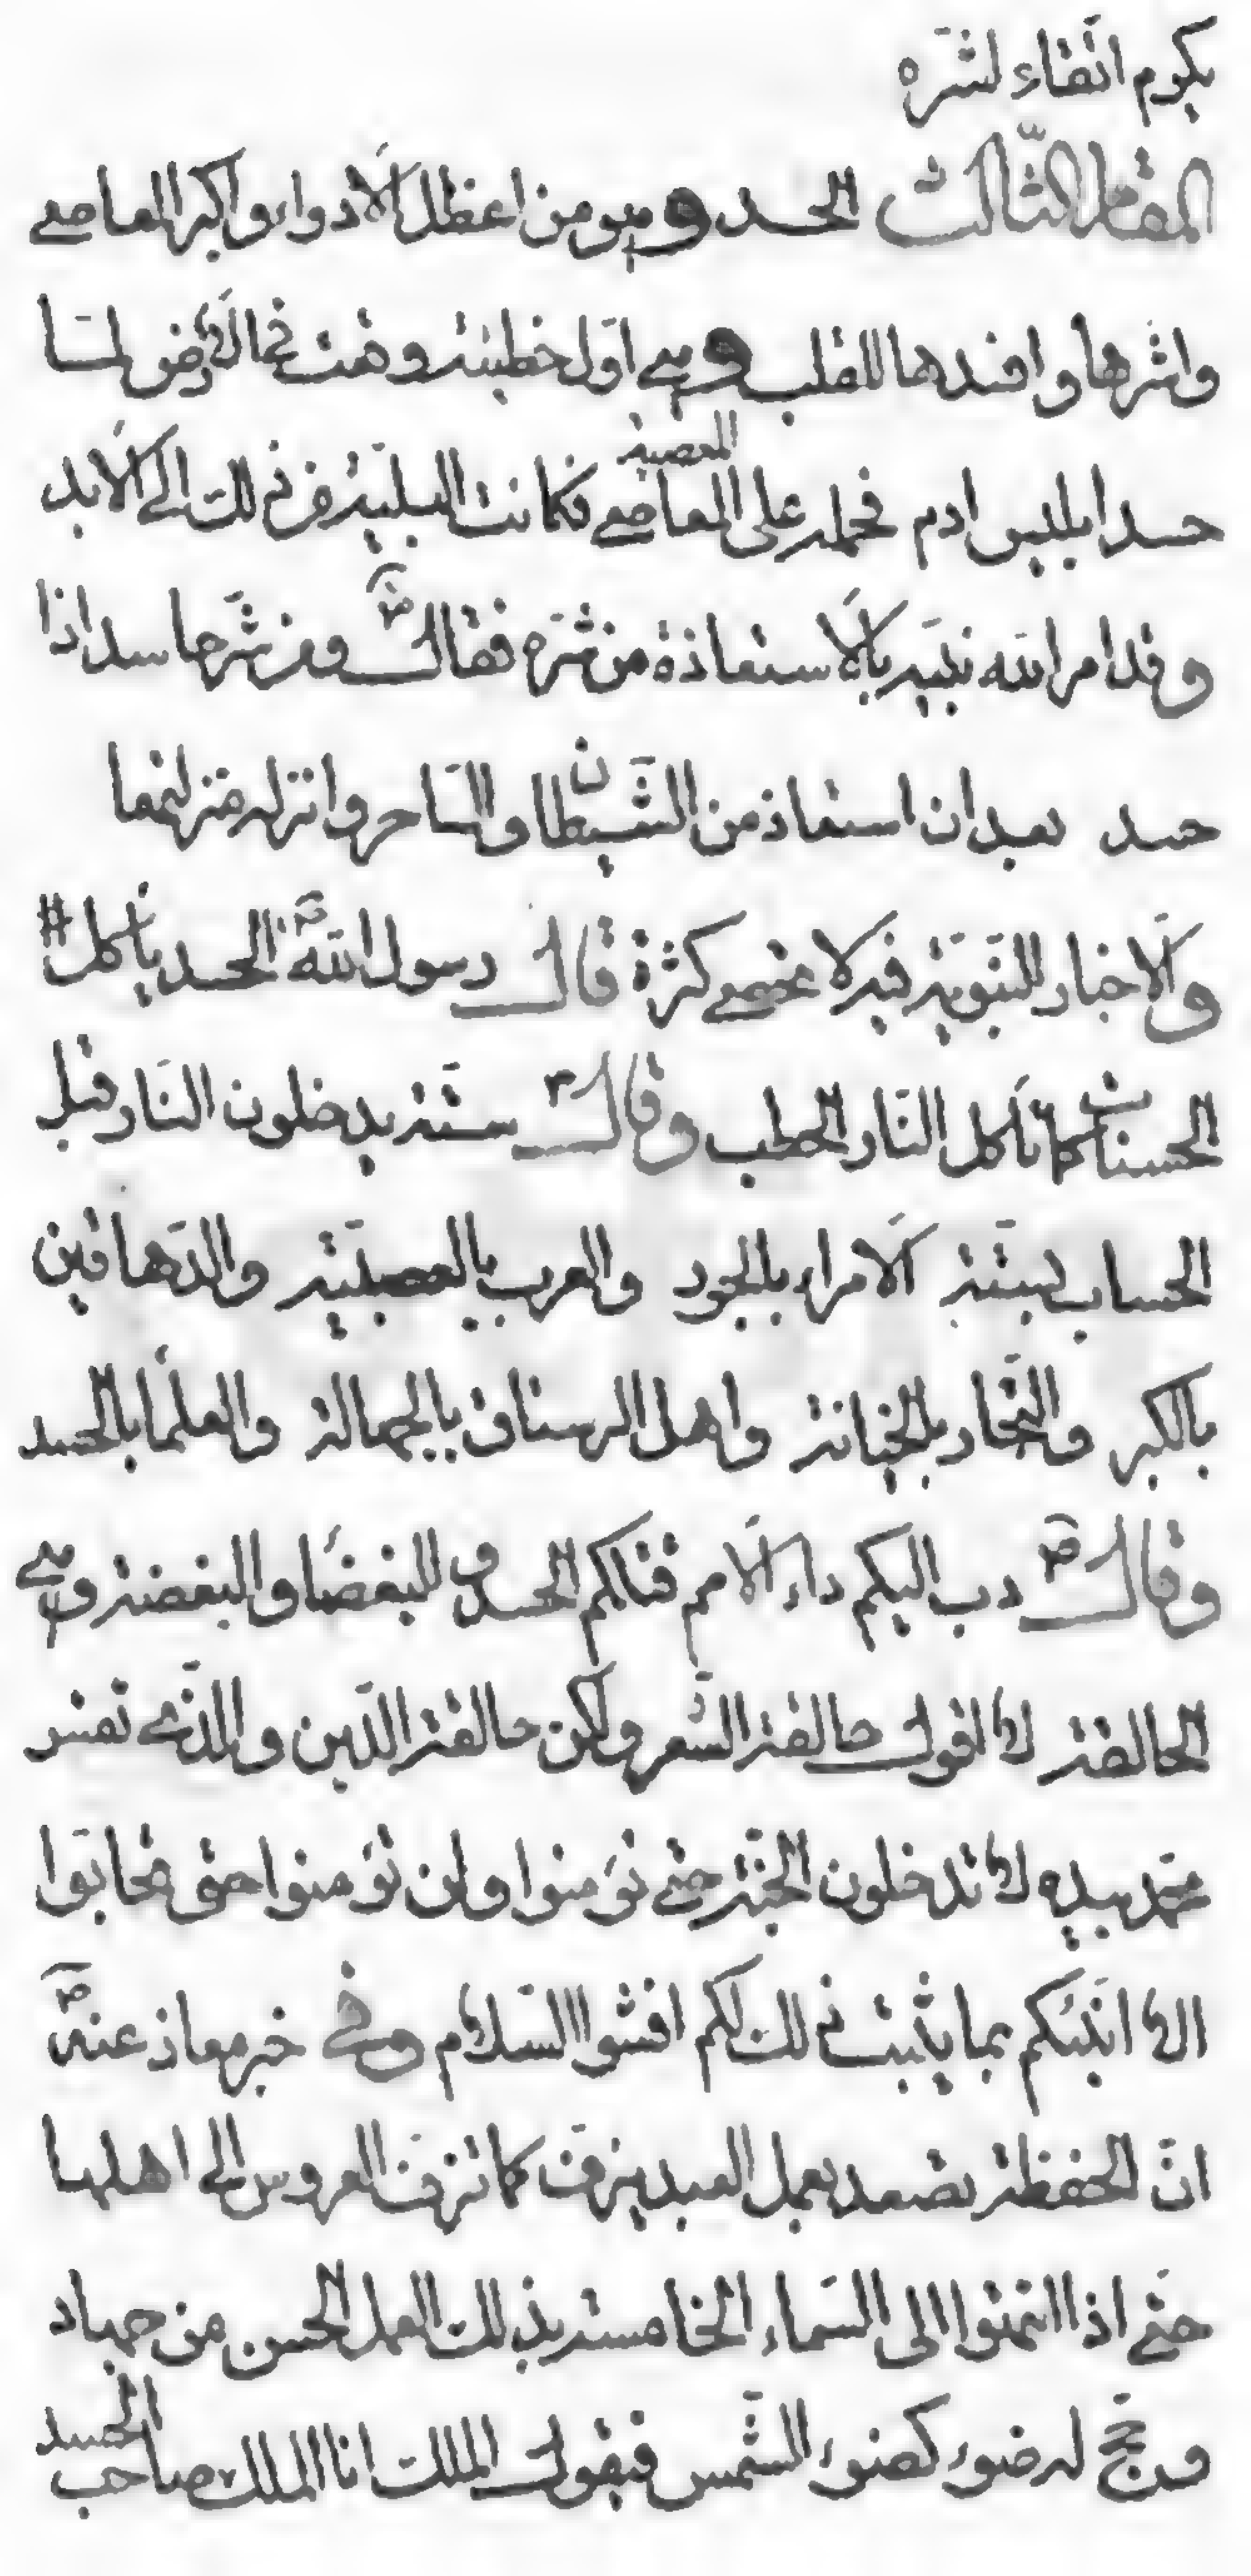 يكرم اتّقاء لشرّه
المقام الثّالث الحسد وهو من اعظم الادواء واكبر المعاصي
واشرها وافسدها للقلب وهي اوّل خطيئة وقعت في الارض لمّا
حسد ابليس ادم فحمله على المعاصي المعصية فكانت البليّة من ذلك الى الابد
وقد امر الله نبيّه بالاستعاذة من شرّه فقال ومن شرّ حاسد اذا
حسد بعد ان استعاذ من الشّيطان والسّاحر وانزله منزلتهما
والاخبار النّبويّة فيه لا تحصى كثرة قال رسول الله ص الحسد ياكل
الحسنات كما تأكل النّار الحطب وقال ص ستّة يدخلون النّار قبل
الحساب بستّة الامراء بالجور والعرب بالعصبيّة والدّهاقين
بالكبر والتّجار بالخيانة واهل الرستاق بالجهالة والعلمآ بالحسد
وقال ص دب اليكم داء الامم قبلكم الحسد و البغضاء والبغضة وهي
الحالقة لا اقول حالقة الشّعر ولكن حالقة الدّين والّذي نفس
محمّد بيده لا تدخلون الجنّة حتّى تؤمنوا ولن تؤمنوا حتى تحابّوا
الا انبّئكم بما يثبت ذلك لكم افشوا السّلام وفي خبر معاذ عنه ص
انّ الحفظة تصعد بعمل العبد يزفّ كما تزفّ العروس الى اهلها
حتّى اذا انتهوا الى السّماء الخامسة بذلك العمل الحسن من جهاد
وحجّ له ضوء كضوء الشّمس فيقول الملك انا الملك صاحب الحسد